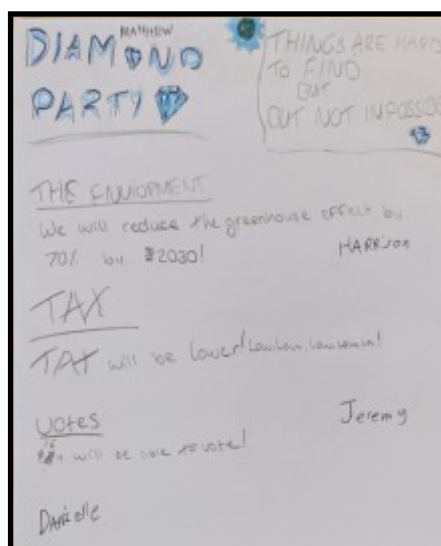 MATTHEW
DIAMOND
PARTY
THINGS ARE HARD
TO FIND
BUT
BUT NOT IMPOSSIB
THE ENVIOPMENT
We will reduce the greenhouse effect by
70% by 2030!
HARRISON
TAX
TAX will be lower!
Jeremy
Votes
16+ will be able to vote!
Danielle